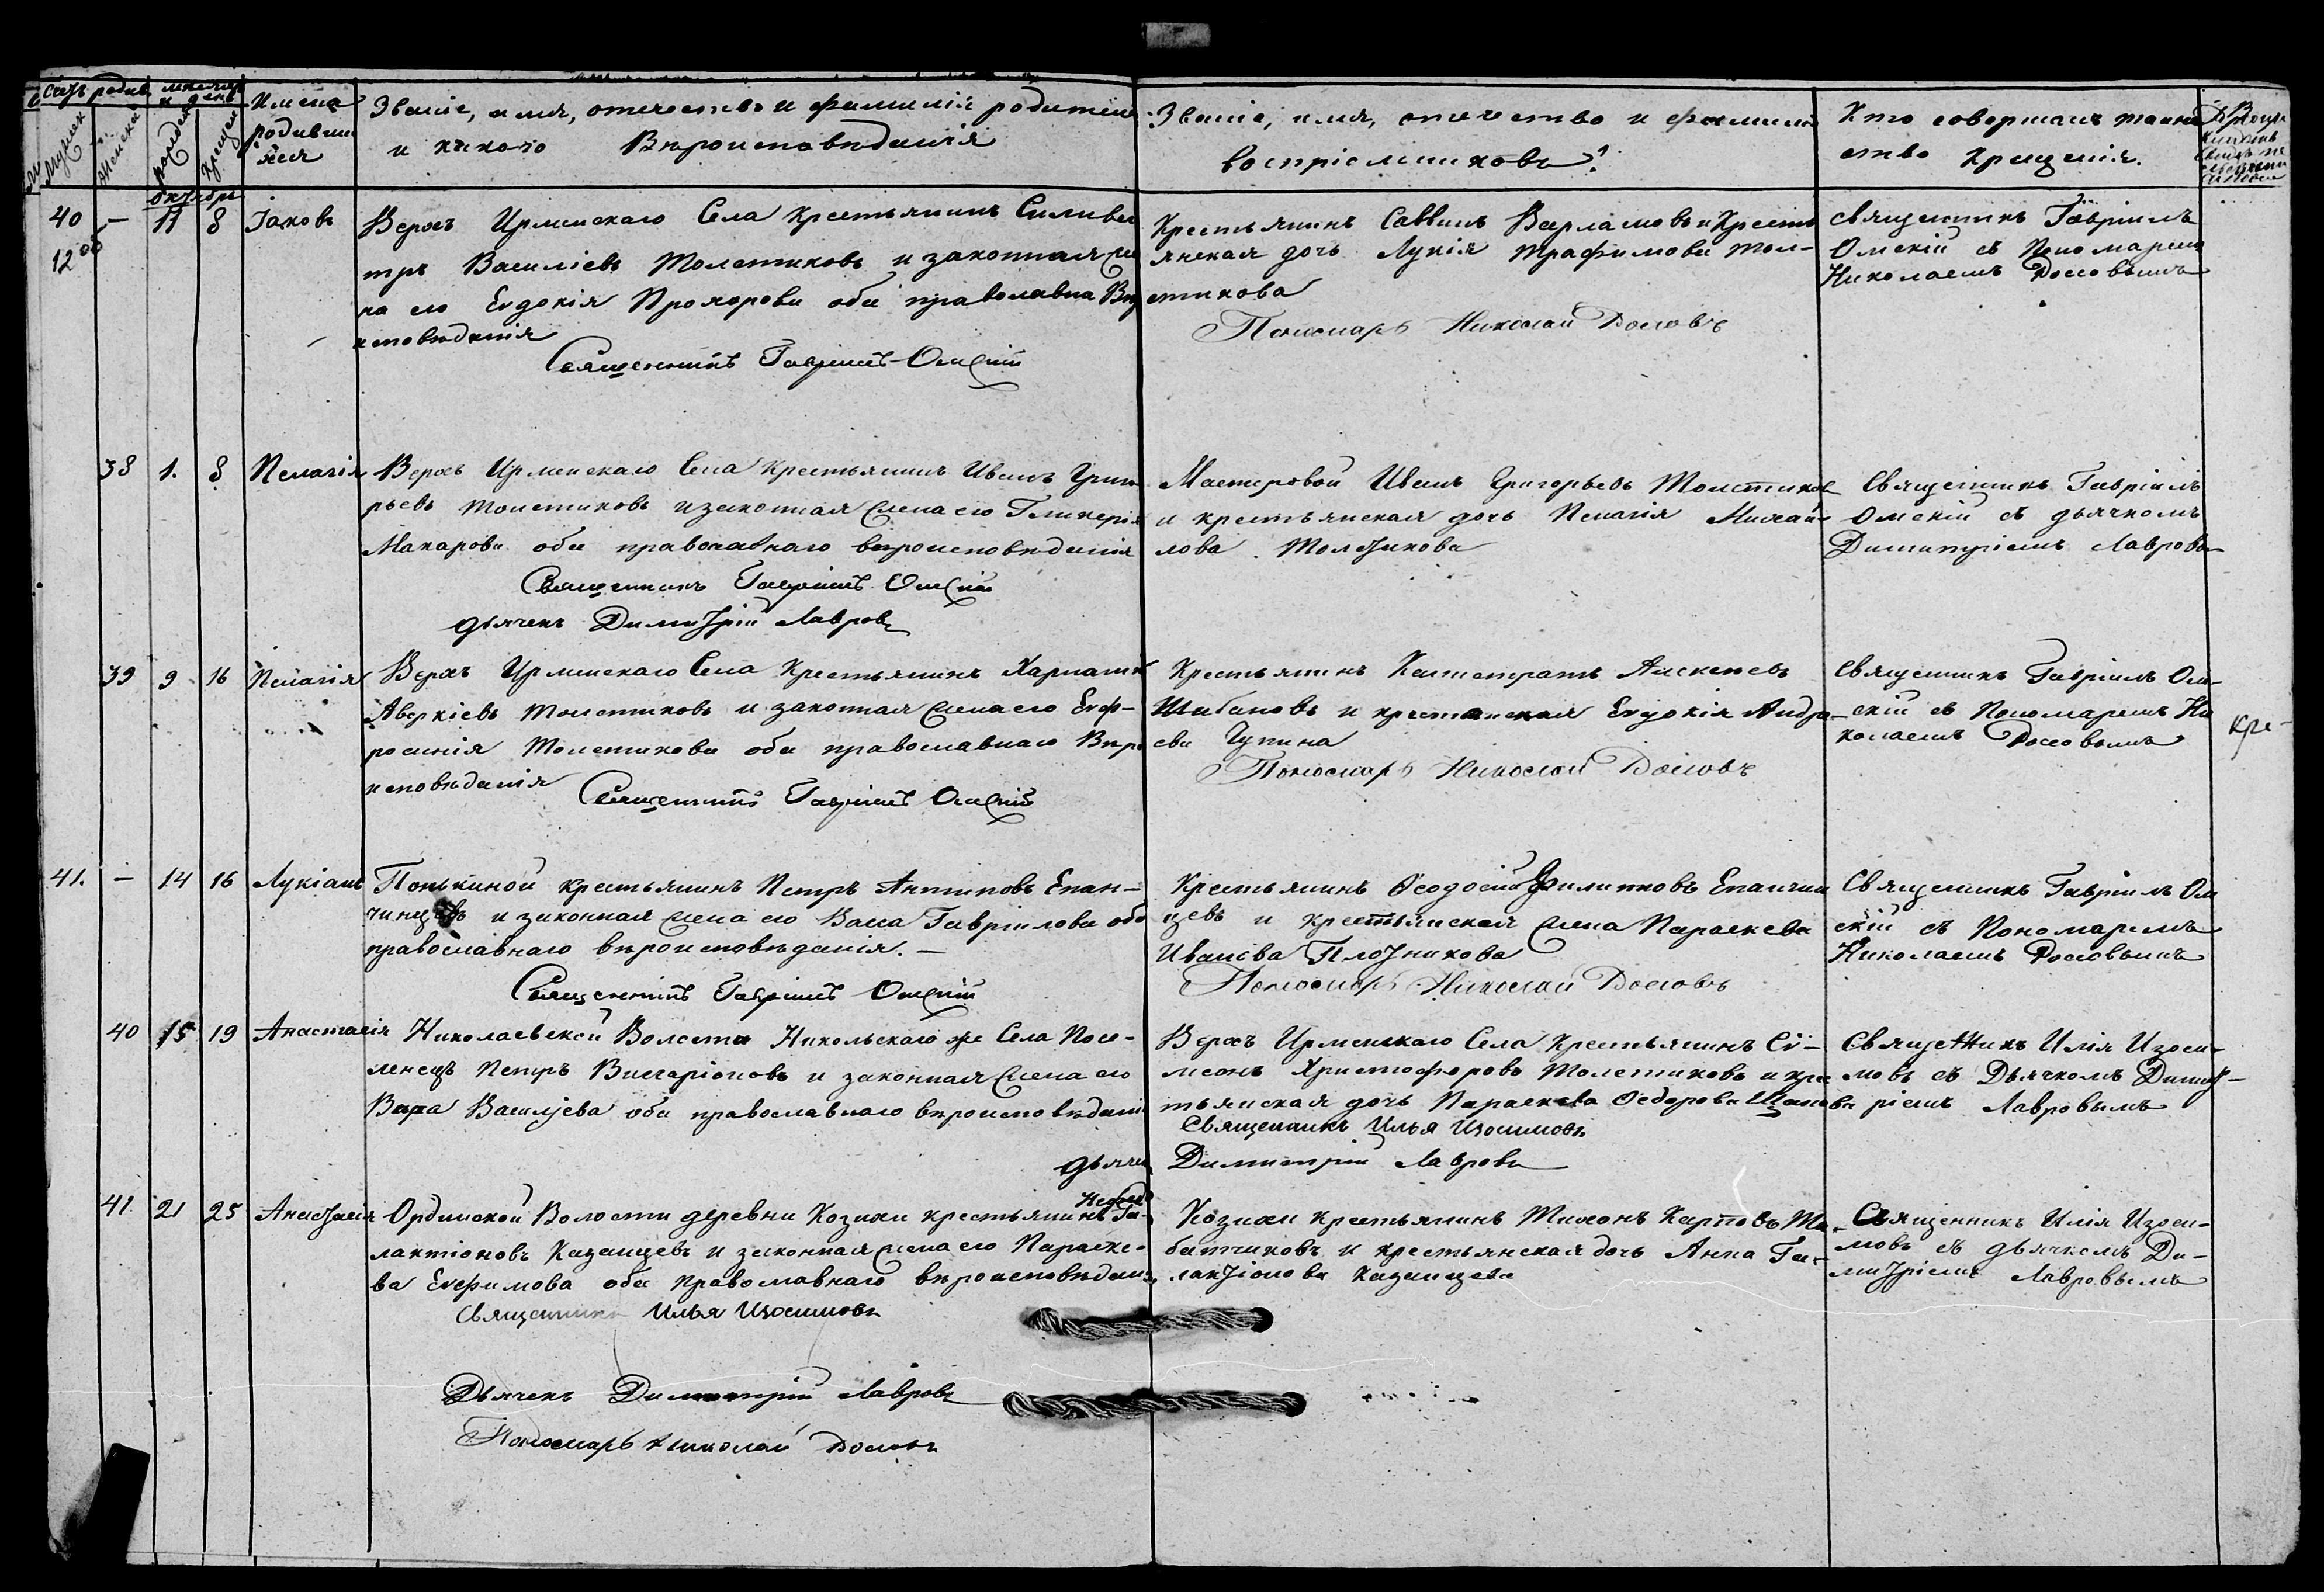 Счетъ родив.
Мужск
Женска
месяцъ и день
рожден
крещен
Имена
родивши
хся
Званіе, имя, отечество и фамилія родителе
и какого Вѣроисповѣданія
Званіе, имя, отечество и фамилія
воспріемниковъ.
Кто совершалъ таин
ство крещенія.
Октября
40 — 11 8 Іаковъ
Верхъ Ирменскаго Села Крестьянинъ Силиве
тръ Василіевъ Толстиковъ и законная же
на его Евдокія Прохорова оба православна Вѣр
исповѣданія
Священникъ Гавріилъ Омскій
Крестьянинъ Саввинъ Варламовъ и Кресть
янская дочь Лукія Трафимова Тол-
стикова
Пономарь Николай Россовъ
Священникъ Гавріилъ
Омскій съ Пономаремъ
Николаемъ Россовымъ
38 1. 8 Пелагія
Верхъ Ирменскаго Села Крестьянинъ Иванъ Григо
рьевъ Толстиковъ и законная жена его Гликерія
Макарова оба православнаго вѣроисповѣданія
Священникъ Гавріилъ Омскій
дьячекъ Димитрій Лавровъ
Мастеровой Иванъ Григорьевъ Толстиковъ
и крестьянская дочь Пелагія Михай
лова Толстикова
Священникъ Гавріилъ
Омскій съ дьячкомъ
Димитріемъ Лавровы
39 9 16 Пелагія
Верхъ Ирменскаго Села Крестьянинъ Харлами
Аверкіевъ Толстиковъ и законная жена его Евф-
росинія Толстикова оба православнаго Вѣро
исповѣданія
Священникъ Гавріилъ Омскій
Крестьянинъ Калистратъ Алексеевъ
Шибановъ и крестьянская Евдокія Андре-
ева Чупина
Пономарь Николай Россовъ
Священникъ Гавріилъ Ом-
скій съ Пономаремъ Ни
колаемъ Россовымъ
кре-
41. — 14 16 Лукіанъ
Понькиной крестьянинъ Петръ Антиповъ Епан-
чинцевъ и законная жена его Васса Гавріилова оба
православнаго вѣроисповѣданія. —
Священникъ Гавріилъ Омскій
Крестьянинъ Ѳеодосій Филиповъ Епанчин
цевъ и крестьянская жена Параскева
Иванова Плотникова
Пономарь Николай Россовъ
Священникъ Гавріилъ Ом
скій съ Пономаремъ
Николаемъ Россовымъ
40 15 19 Анастасія
Николаевской Волости Никольскаго же Села Посе-
ленецъ Петръ Висаріоновъ и законная жена его
Васса Василіева оба православнаго вѣроисповѣдані
дьяче
Верхъ Ирменскаго Села Крестьянинъ Сѵ-
меонъ Христофоровъ Толстиковъ и крес
тьянская дочь Параскева Ѳедорова
Священникъ Илья Изосимовъ
Димитрій Лавровъ
Священникъ Илія Изоси-
мовъ съ Дьячкомъ Димит-
ріемъ Лавровымъ
41. 21 25 Анастасія
Ординской Волости деревни Козихи крестьянинъ Га-
лактіоновъ Казанцевъ и законная жена его Параске-
ва Евфимова оба православнаго вѣроисповѣдан
Священникъ Илья Изосимовъ
Дьячекъ Димитрій Лавровъ
Пономарь Николай Россовъ
Козихи крестьянинъ Тихонъ Карповъ Та-
батчиковъ и крестьянская дочь Анна Га-
лактіонова Казанцева
Священникъ Илія Изоси-
мовъ съ дьячкомъ Ди-
митріемъ Лавровымъ